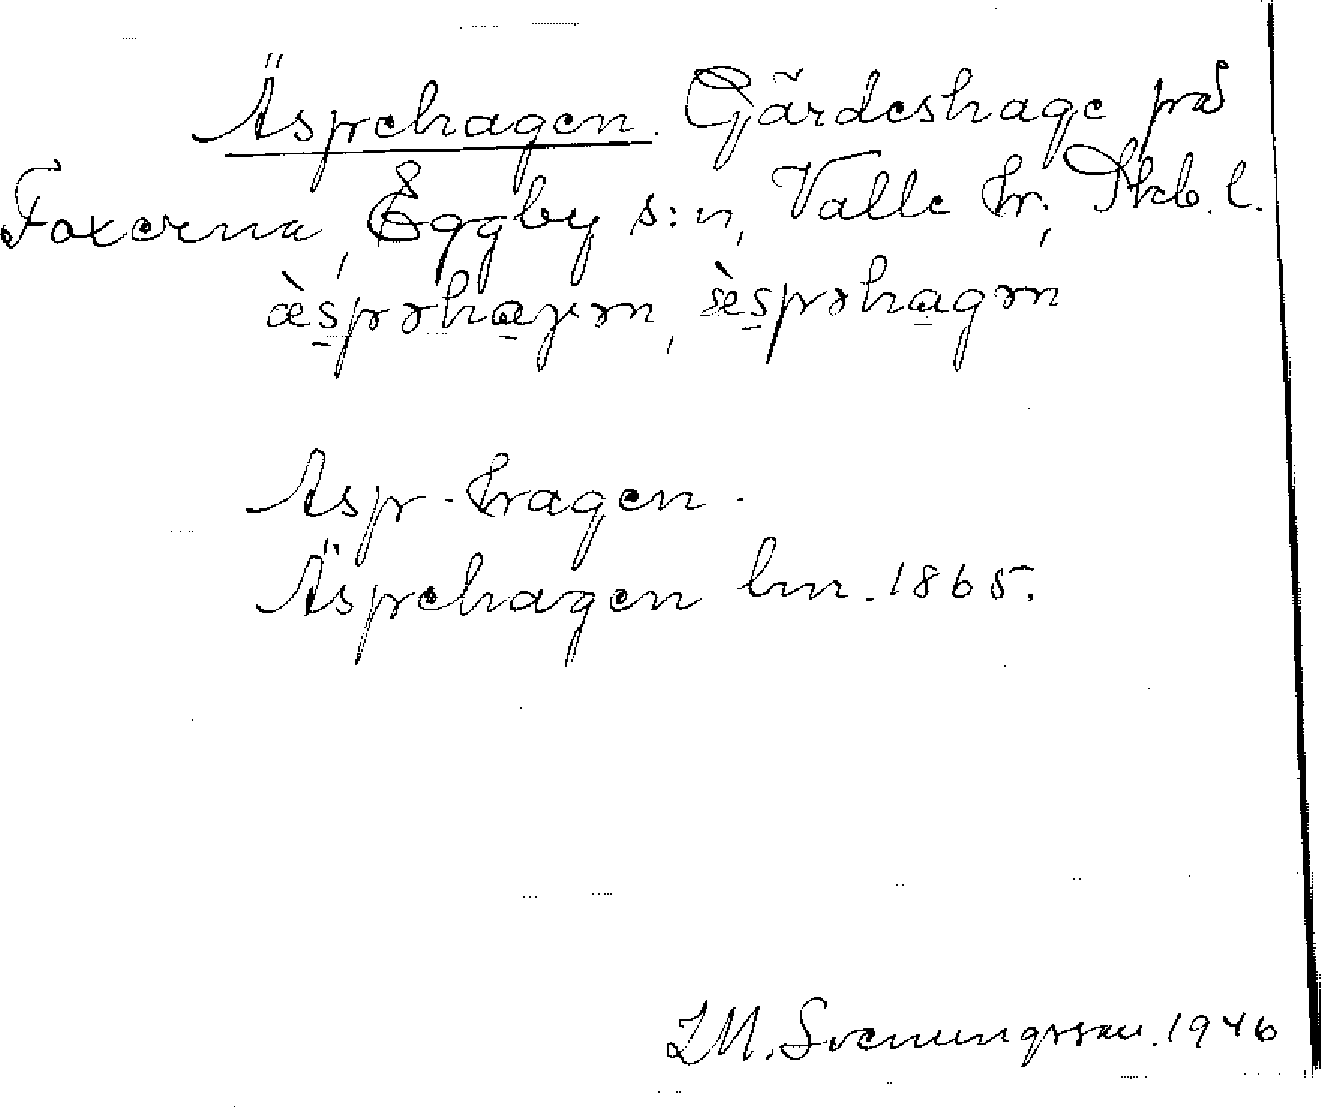 Äspehagen. Gärdeshage på
Foxerna, Eggby s:n, Valle hr, Skb. l.
æ̀s̠pəha̠gən, æ̀s̠pəha̠gən
Asp-hagen.
Äspehagen lm. 1865.
L M. Svenungsson. 1946